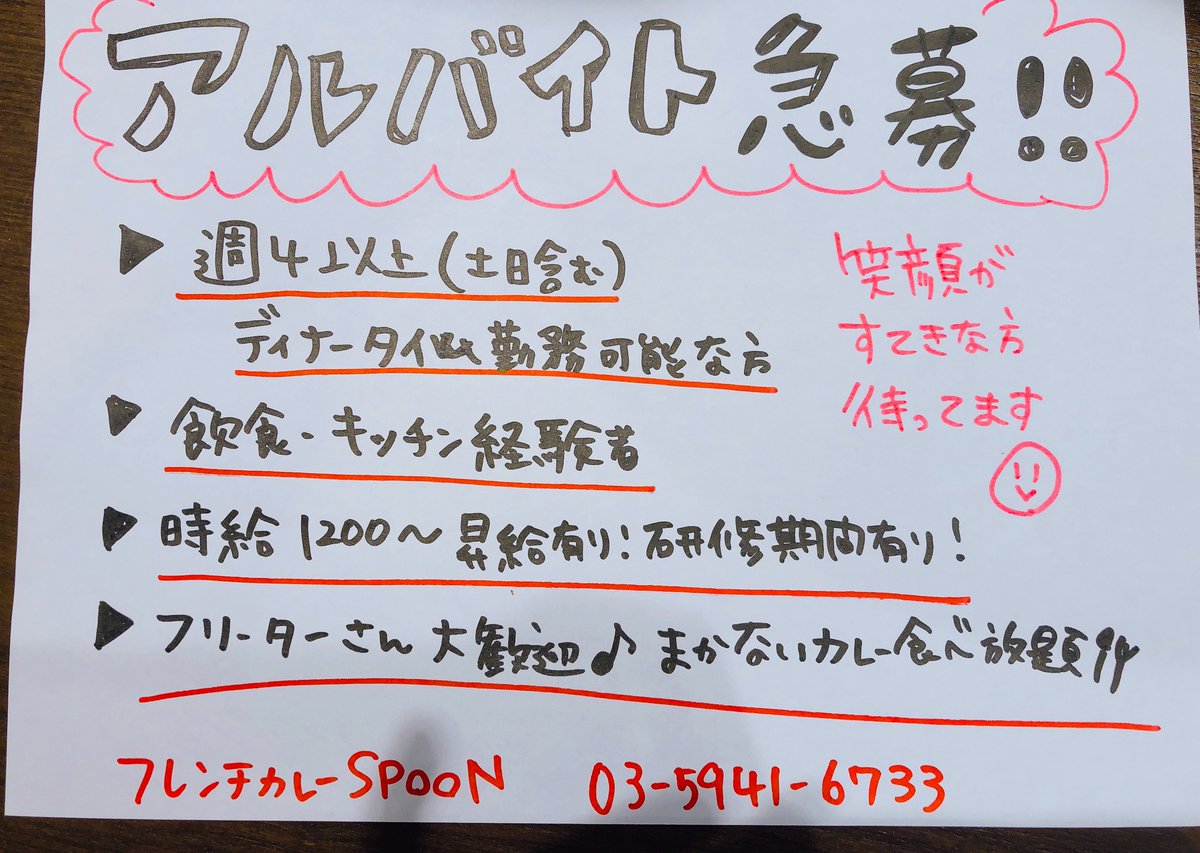 アルバイト急募!!
▶ 週4以上(土日含む)
ディナータイム勤務可能な方
笑顔が
すてきな方
待ってます
▶ 飲食・キッチン経験者
▶ 時給1200〜昇給有り!研修期間有り!
▶ フリーターさん大歓迎♪まかないカレー食べ放題
フレンチカレーSPOON 03-5941-6733